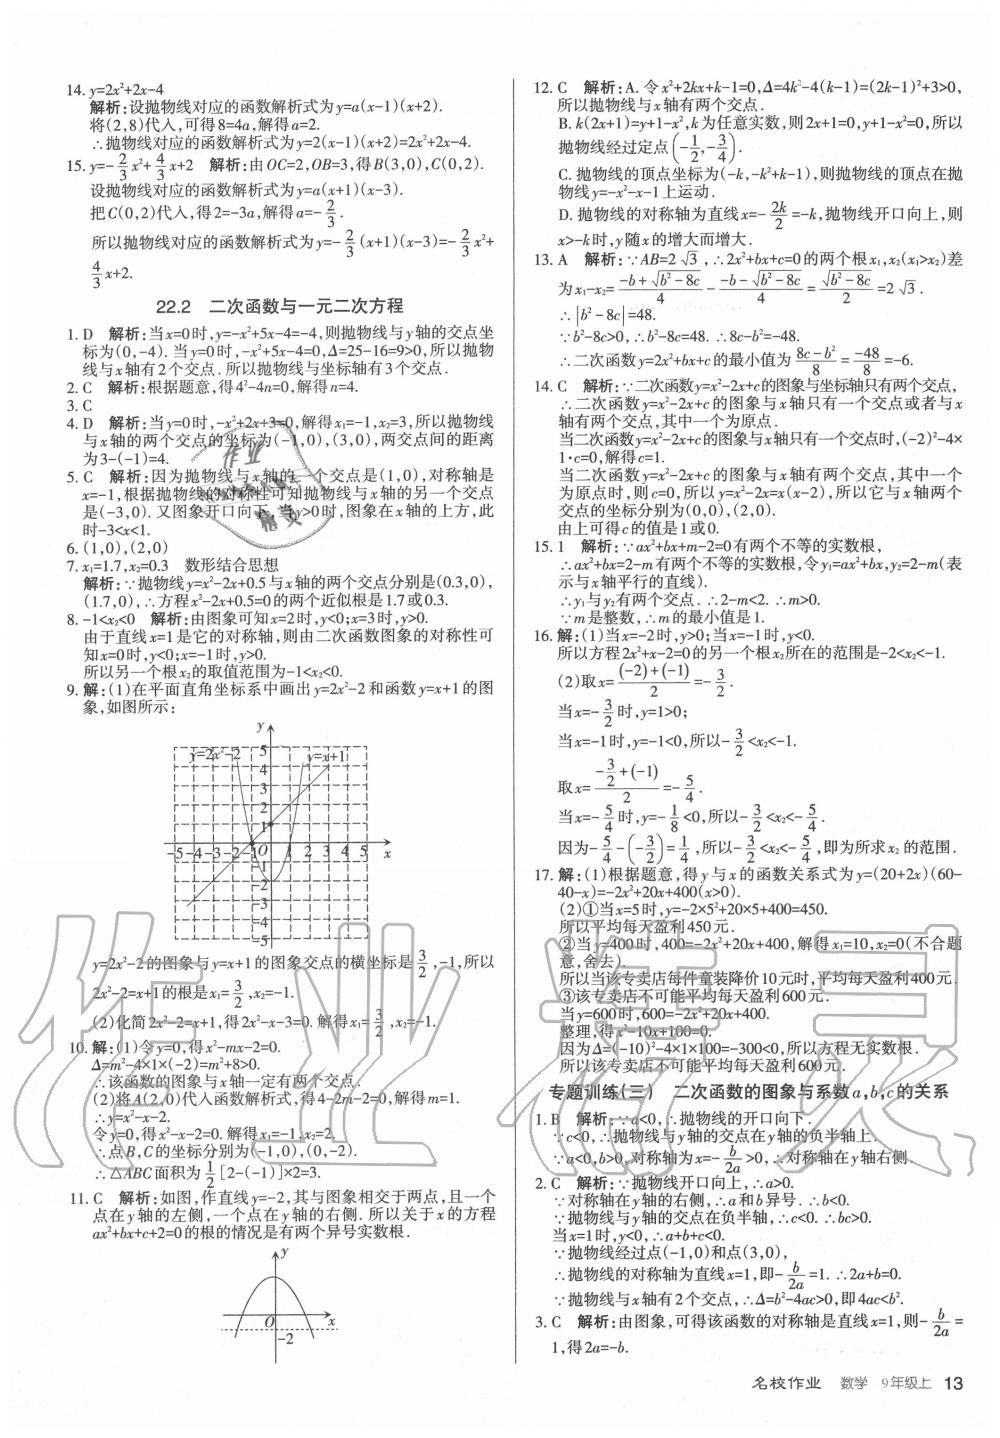 14. y=2x²+2x-4
解析:设抛物线对应的函数解析式为y=a(x-1)(x+2).
将(2,8)代入,可得8=4a,解得a=2.
∴抛物线对应的函数解析式为y=2(x-1)(x+2)=2x²+2x-4.
15. y=-2/3x²+4/3x+2 解析:由OC=2,OB=3,得B(3,0),C(0,2).
设抛物线对应的函数解析式为y=a(x+1)(x-3).
把C(0,2)代入,得2=-3a,解得a=-2/3.
所以抛物线对应的函数解析式为y=-2/3(x+1)(x-3)=-2/3x²+
4/3x+2.
22.2 二次函数与一元二次方程
1. D 解析:当x=0时,y=-x²+5x-4=-4,则抛物线与y轴的交点坐
标为(0,-4). 当y=0时,-x²+5x-4=0,Δ=25-16=9>0,所以抛物
线与x轴有2个交点. 所以抛物线与坐标轴有3个交点.
2. C 解析:根据题意,得4²-4n=0,解得n=4.
3. C
4. D 解析:当y=0时,-x²+2x+3=0,解得x₁=-1,x₂=3,所以抛物线
与x轴的两个交点的坐标为(-1,0),(3,0),两交点间的距离
为3-(-1)=4.
5. C 解析:因为抛物线与x轴的一个交点是(1,0),对称轴是
x=-1,根据抛物线的对称性可知抛物线与x轴的另一个交点
是(-3,0). 又图象开口向下,当y>0时,图象在x轴的上方,此
时-3<x<1.
6. (1,0),(2,0)
7. x₁=1.7,x₂=0.3 数形结合思想
解析:∵抛物线y=x²-2x+0.5与x轴的两个交点分别是(0.3,0),
(1.7,0),∴方程x²-2x+0.5=0的两个近似根是1.7或0.3.
8. -1<x₂<0 解析:由图象可知x=2时,y<0;x=3时,y>0.
由于直线x=1是它的对称轴,则由二次函数图象的对称性可
知x=0时,y<0;x=-1时,y>0.
所以另一个根x₂的取值范围为-1<x₂<0.
9. 解:(1)在平面直角坐标系中画出y=2x²-2和函数y=x+1的图
象,如图所示:
y
y=2x²-2 5 y=x+1
4
3
2
1
-5 -4 -3 -2 -1 O 1 2 3 4 5 x
-1
-2
-3
-4
-5
y=2x²-2的图象与y=x+1的图象交点的横坐标是3/2,-1,所以
2x²-2=x+1的根是x₁=3/2,x₂=-1.
(2)化简2x²-2=x+1,得2x²-x-3=0. 解得x₁=3/2,x₂=-1.
10. 解:(1)令y=0,得x²-mx-2=0.
Δ=m²-4×1×(-2)=m²+8>0.
∴该函数的图象与x轴一定有两个交点.
(2)将A(2,0)代入函数解析式,得4-2m-2=0,解得m=1.
∴y=x²-x-2.
令y=0,得x²-x-2=0,解得x₁=-1,x₂=2.
∴点B,C的坐标分别为(-1,0),(0,-2).
∴△ABC面积为1/2[2-(-1)]×2=3.
11. C 解析:如图,作直线y=-2,其与图象相交于两点,且一个
点在y轴的左侧,一个点在y轴的右侧. 所以关于x的方程
ax²+bx+c+2=0的根的情况是有两个异号实数根.
y
O x
-2
12. C 解析:A. 令x²+2kx+k-1=0,Δ=4k²-4(k-1)=(2k-1)²+3>0,
所以抛物线与x轴有两个交点.
B. k(2x+1)=y+1-x²,k为任意实数,则2x+1=0,y+1-x²=0,所以
抛物线经过定点(-1/2,-3/4).
C. 抛物线的顶点坐标为(-k,-k²+k-1),则抛物线的顶点在抛
物线y=-x²-x-1上运动.
D. 抛物线的对称轴为直线x=-2k/2=-k,抛物线开口向上,则
x>-k时,y随x的增大而增大.
13. A 解析:∵AB=2√3,∴2x²+bx+c=0的两个根x₁,x₂(x₁>x₂)差
为x₁-x₂=(-b+√(b²-8c))/4-(-b-√(b²-8c))/4=√(b²-8c)/2=2√3.
∴|b²-8c|=48.
∵b²-8c>0,∴b²-8c=48. ∴8c-b²=-48.
∴二次函数y=2x²+bx+c的最小值为(8c-b²)/8=-48/8=-6.
14. C 解析:∵二次函数y=x²-2x+c的图象与坐标轴只有两个交点,
∴二次函数y=x²-2x+c的图象与x轴只有一个交点或者与x
轴有两个交点,其中一个为原点.
当二次函数y=x²-2x+c的图象与x轴只有一个交点时,(-2)²-4×
1·c=0,解得c=1.
当二次函数y=x²-2x+c的图象与x轴有两个交点,其中一个
为原点时,则c=0,所以y=x²-2x=x(x-2),所以它与x轴两个
交点的坐标分别为(0,0),(2,0).
由上可得c的值是1或0.
15. 1 解析:∵ax²+bx+m-2=0有两个不等的实数根,
∴ax²+bx=2-m有两个不等的实数根,令y₁=ax²+bx,y₂=2-m(表
示与x轴平行的直线).
∴y₁与y₂有两个交点. ∴2-m<2. ∴m>0.
∵m是整数,∴m的最小值是1.
16. 解:(1)当x=-2时,y>0;当x=-1时,y<0.
所以方程2x²+x-2=0的另一个根x₂所在的范围是-2<x₂<-1.
(2)取x=((-2)+(-1))/2=-3/2.
当x=-3/2时,y=1>0;
当x=-1时,y=-1<0,所以-3/2<x₂<-1.
取x=(-3/2+(-1))/2=-5/4.
当x=-5/4时,y=-1/8<0,所以-3/2<x₂<-5/4.
因为-5/4-(-3/2)=1/4,所以-3/2<x₂<-5/4,即为所求x₂的范围.
17. 解:(1)根据题意,得y与x的函数关系式为y=(20+2x)(60-
40-x)=-2x²+20x+400(x>0).
(2)①当x=5时,y=-2×5²+20×5+400=450.
所以平均每天盈利450元.
②当y=400时,400=-2x²+20x+400,解得x₁=10,x₂=0(不合题
意,舍去).
所以当该专卖店每件童装降价10元时,平均每天盈利400元.
③该专卖店不可能平均每天盈利600元.
当y=600时,600=-2x²+20x+400.
整理,得x²-10x+100=0.
因为Δ=(-10)²-4×1×100=-300<0,所以方程无实数根.
所以该专卖店不可能平均每天盈利600元.
专题训练(三) 二次函数的图象与系数a,b,c的关系
1. B 解析:∵a<0,∴抛物线的开口向下.
∵c<0,∴抛物线与y轴的交点在y轴的负半轴上.
∵a<0,b>0,对称轴为x=-b/2a>0,∴对称轴在y轴右侧.
2. C 解析:∵抛物线开口向上,∴a>0.
∵对称轴在y轴的右侧,∴a和b异号. ∴b<0.
∵抛物线与y轴的交点在负半轴,∴c<0. ∴bc>0.
当x=1时,y<0,∴a+b+c<0.
∵抛物线经过点(-1,0)和点(3,0),
∴抛物线的对称轴为直线x=1,即-b/2a=1. ∴2a+b=0.
∵抛物线与x轴有2个交点,∴Δ=b²-4ac>0,即4ac<b².
3. C 解析:由图象,可得该函数的对称轴是直线x=1,则-b/2a=
1,得2a=-b.
名校作业 数学 9年级上 13
作业精灵